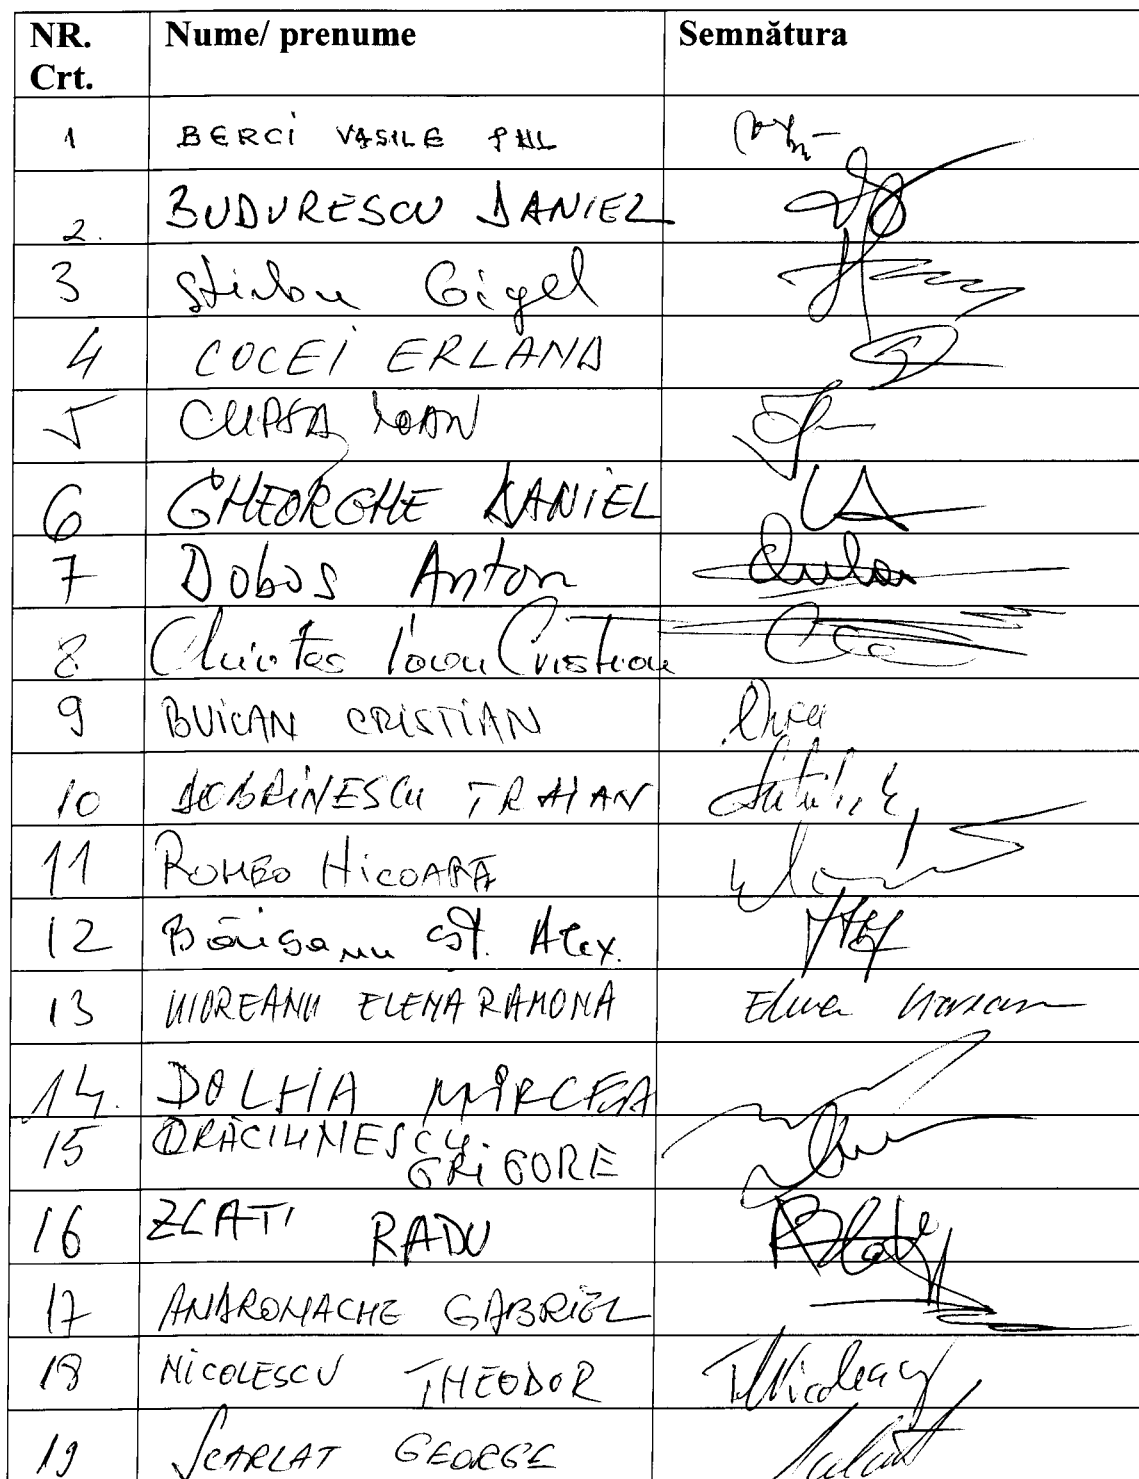 NR. Crt. Nume/ prenume Semnătura
1 BERCI VASILE PNL
2. BUDURESCU DANIEL
3 Știrbu Gigel
4 COCEI ERLAND
5 CUPȘA IOAN
6 GHEORGHE DANIEL
7 Dobos Anton
8 Chirteș Ioan Cristian
9 BUICAN CRISTIAN
10 DOBRINESCU TRAIAN
11 ROMEO NICOARĂ
12 Băișanu Șt. Alex.
13 UIOREANU ELENA RAMONA Elena Uioreanu
14. DOLHA MIRCEA
15 CRĂCIUNESCU GRIGORE
16 ZLATI RADU
17 ANDRONACHE GABRIEL
18 NICOLESCU THEODOR TNicolescu
19 SCARLAT GEORGE